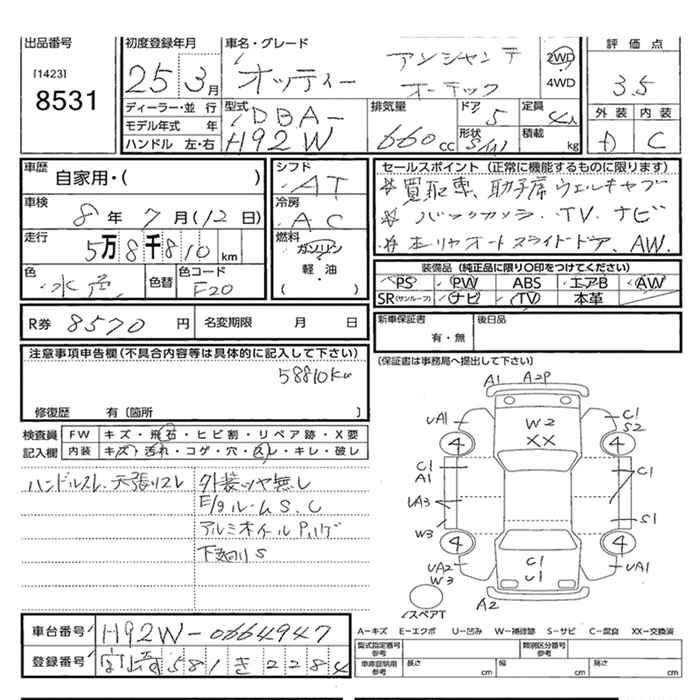 出品番号
[1423]
8531
初度登録年月
25 3月
車名・グレード
オッティー
アンシャンテ
オーテック
2WD
4WD
評価点
3.5
外装 内装
D C
ディーラー・並行
モデル年式 年
ハンドル 左・右
型式
DBA-
H92W
排気量
660cc
ドア
5
形状
S/W
定員
4人
積載
kg
車歴
自家用・( )
車検
8年7月(12日)
走行
5万8千810km
色
水色
色替
色コード
F20
シフト
AT
冷房
AC
燃料
ガソリン
軽・油
( )
セールスポイント (正常に機能するものに限ります)
※買取車、助手席ウェルキャブ
※バックカメラ、TV、ナビ
※左リヤオートスライドドア、AW.
装備品(純正品に限り〇印をつけてください)
PS PW ABS エアB AW
SR(サンルーフ) ナビ TV 本革
R券 8570円
名変期限 月 日
新車保証書
有・無
後日品
(保証書は事務局へ提出して下さい)
注意事項申告欄(不具合内容等は具体的に記入して下さい)
58810Km
修復歴 有〔箇所 〕
検査員
記入欄
FW キズ・飛石・ヒビ割・リペア跡・X要
内装 キズ・汚れ・コゲ・穴・スレ・キレ・破レ
ハンドルスレ、天張リスレ
外装ツヤ無し
E/gルームS、C
アルミホイール
下廻りS
A1 A2P
UA1
W2
XX
C1
S2
4
4
C1
A1
C1
UA3
S1
W3
4
4
UA2
W3
C1
U1
UA1
A2
スペアT
車台番号
H92W-0664947
登録番号
581き2284
A-キズ E-エクボ U-凹み W-補修跡 S-サビ C-腐食 XX-交換済
型式指定番号
参考
類別区分番号
参考
車庫証明用
参考
長さ cm
幅 cm
高さ cm